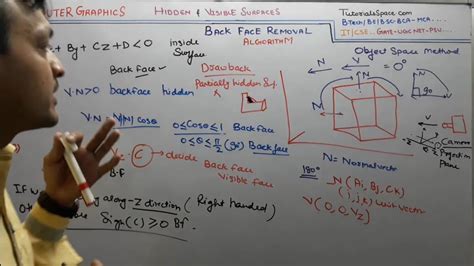 COMPUTER GRAPHICS
HIDDEN & VISIBLE SURFACES
TutorialsSpace.com
BTech/BE/BSc-BCA-MCA....
IT/CSE... GATE-UGC NET-PSU...
BACK FACE REMOVAL
ALGORITHM
Object Space method
+ By + Cz + D < 0 inside
Surface
Back face
V.N > 0 backface hidden
Drawback
Partially hidden
V.N = |V||N| cosθ
0 ≤ cosθ ≤ 1 Backface
0 ≤ θ ≤ π/2 Backface
C → decide Back face
Visible face
B.F
= 0°
N
90°
V
Camera
Projection
Plane
N = Normal vector
180°
N (Ai, Bj, CK)
(i, j, k) unit vector
V (0, 0, Vz)
If viewing along -Z direction (Right handed)
Sign(C) ≥ 0 B.f.